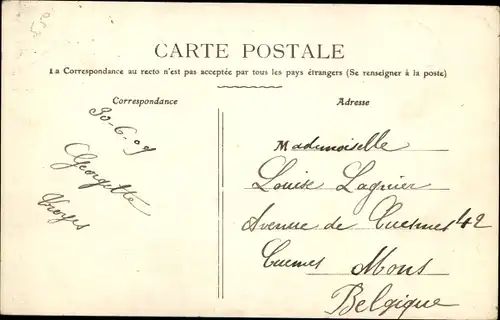 550
CARTE POSTALE
La Correspondance au recto n'est pas acceptée par tous les pays étrangers (Se renseigner à la poste)
Correspondance
Adresse
30-6-09
Georgette
Troyes
Mademoiselle
Louise Lagnier
Avenue de Cuesmes 42
Cuesmes Mons
Belgique